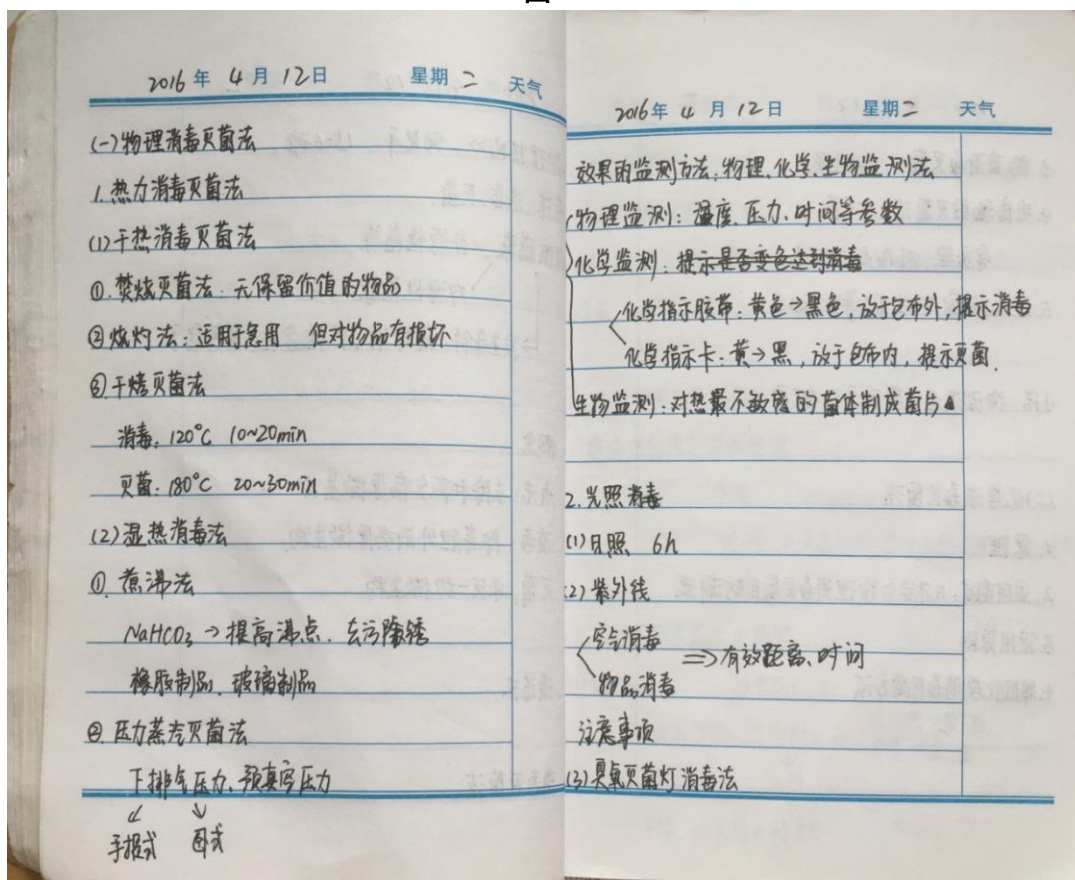 2016年 4月 12日 星期二 天气
(一)物理消毒灭菌法
1.热力消毒灭菌法
(1)干热消毒灭菌法
①.焚烧灭菌法:无保留价值的物品
②烧灼法:适用于急用 但对物品有损坏
③干烤灭菌法
消毒:120°C 10~20min
灭菌:180°C 20~30min
(2)湿热消毒法
①.煮沸法
NaHCO3→提高沸点.去污除锈
橡胶制品.玻璃制品
②.压力蒸汽灭菌法
下排气压力、预真空压力
手提式 卧式
2016年 4月 12日 星期二 天气
效果的监测方法:物理、化学、生物监测法
物理监测:温度.压力.时间等参数
化学监测:提示是否变色达到消毒
化学指示胶带:黄色→黑色,放于包布外,提示消毒
化学指示卡:黄→黑,放于包布内,提示灭菌.
生物监测:对热最不敏感的菌体制成菌片
2.光照消毒
(1)日照 6h
(2)紫外线
空气消毒
物品消毒
⇒有效距离、时间
注意事项
(3)臭氧灭菌灯消毒法